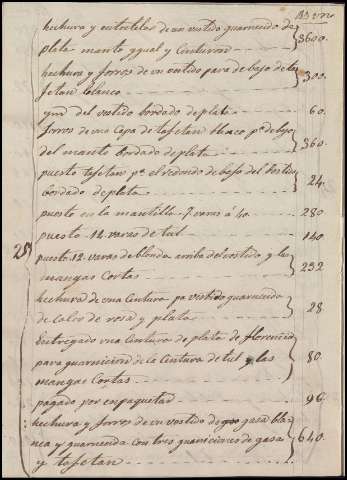 Rs. vn.
hechura y entretelas de un vestido guarnecido de
plata manto ygual y Cinturon 3600.
hechura y forros de un vestido para debajo de ta-
fetan blanco 300.
ydem del vestido bordado de plata 60.
forros de una Capa de tafetan blaco pa. debajo
del manto bordado de plata 360.
puesto tafetan pa. el redondo de bajo del vestido
bordado de plata 24.
puesto en la mantilla 7 varas á 40. 280
puesto 12 varas de tul 140
puesto 12 varas de blonda arriba del vestido y las
mangas Cortas 232
hechura de una Cintura pa. vestido guarnecido
de lalco de rosa y plata 28
Entregado una Cintura de plata de florencia
para guarnicion de la Cintura de tul y las
mangas Cortas 80
pagado por empaquetar 96
hechura y forros de un vestido de gaza blan-
ca y guarnecida con tres guarniciones de gasa
y tafetan 640.